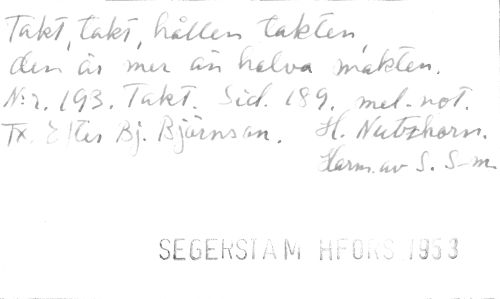 Takt, takt, hållen takten,
den är mer än halva makten.
N:r. 193. Takt. Sid. 189. mel-not.
Tx. Efter Bj. Björnson. H. Nutzhorn.
Harm. av S. S-m.
SEGERSTAM HFORS 1953